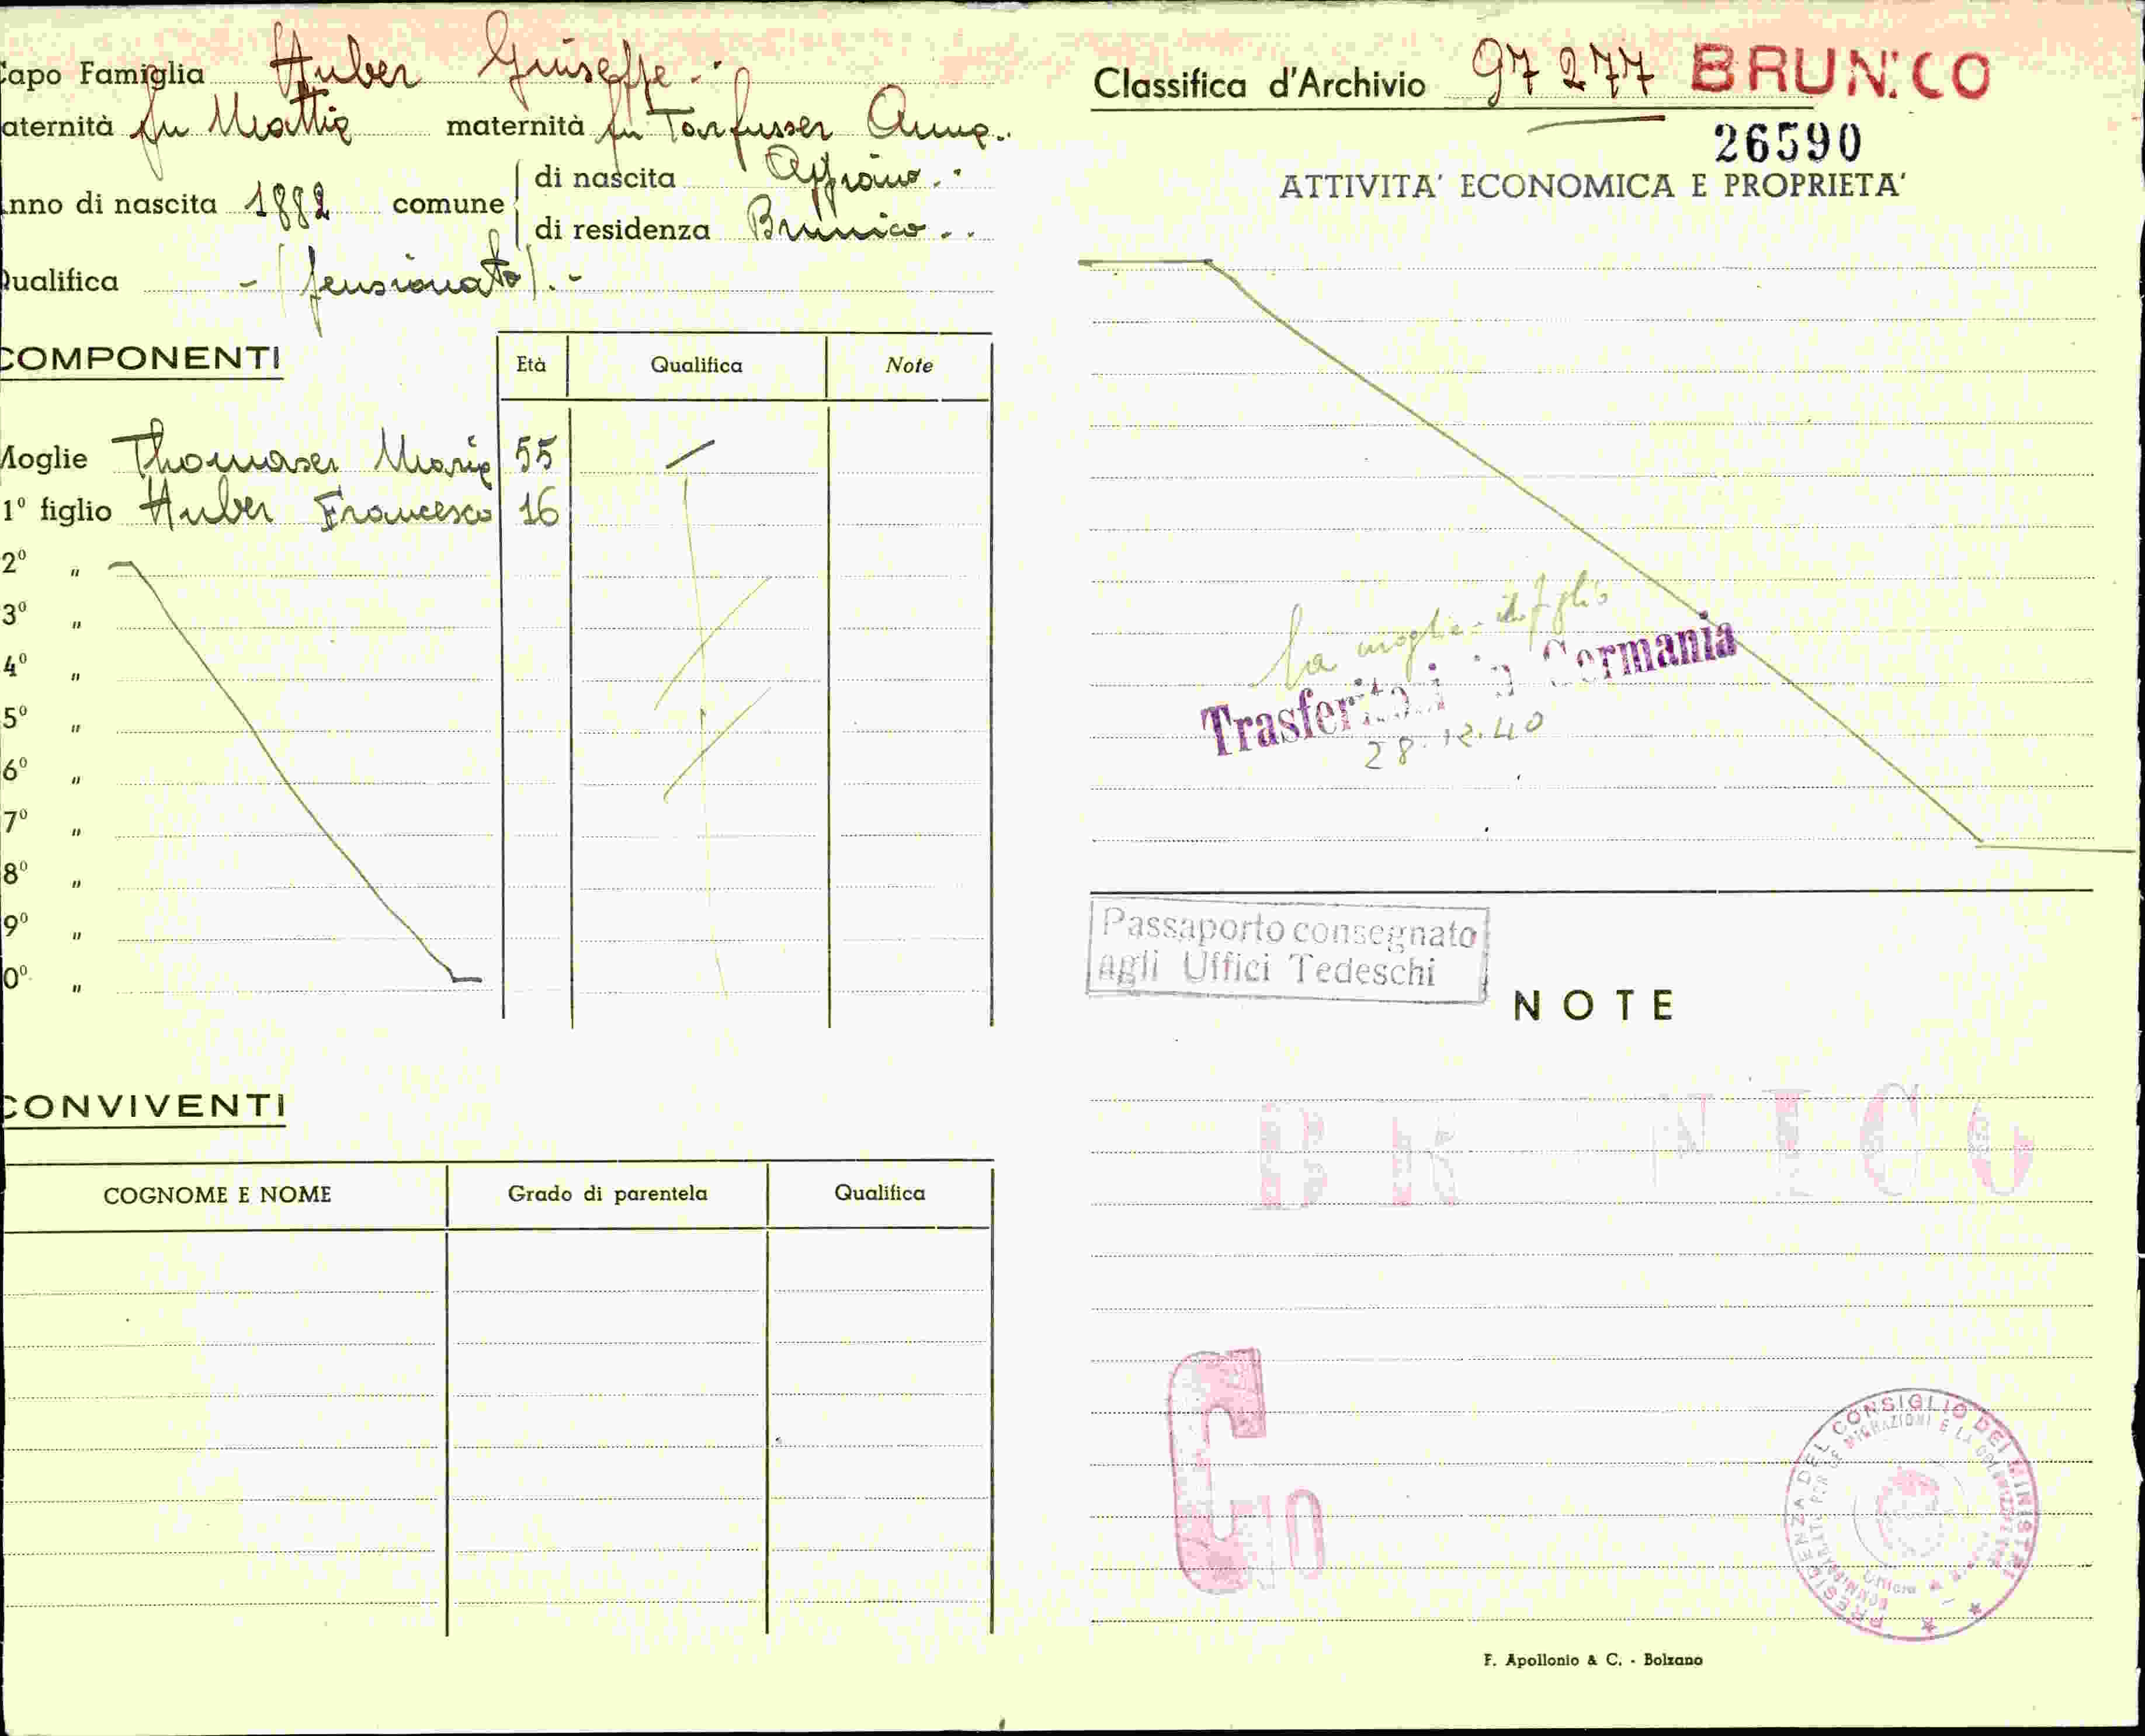 Capo Famiglia Huber Giuseppe.-
aternità fu Mattia maternità fu Tarfusser Anna.-
nno di nascita 1882 comune
di nascita Appiano.-
di residenza Brunico.-
Qualifica - (pensionato).-
COMPONENTI
Età Qualifica Note
Moglie Thomaser Maria 55
1º figlio Huber Francesco 16
2º "
3º "
4º "
5º "
6º "
7º "
8º "
9º "
0º "
CONVIVENTI
COGNOME E NOME Grado di parentela Qualifica
Classifica d'Archivio 97277 BRUNICO
26590
ATTIVITA' ECONOMICA E PROPRIETA'
la moglie il figlio
Trasferito in Germania
28.12.40
Passaporto consegnato
agli Uffici Tedeschi
NOTE
BRUNICO
PRESIDENZA DEL CONSIGLIO DEI MINISTRI
F. Apollonio & C. - Bolzano